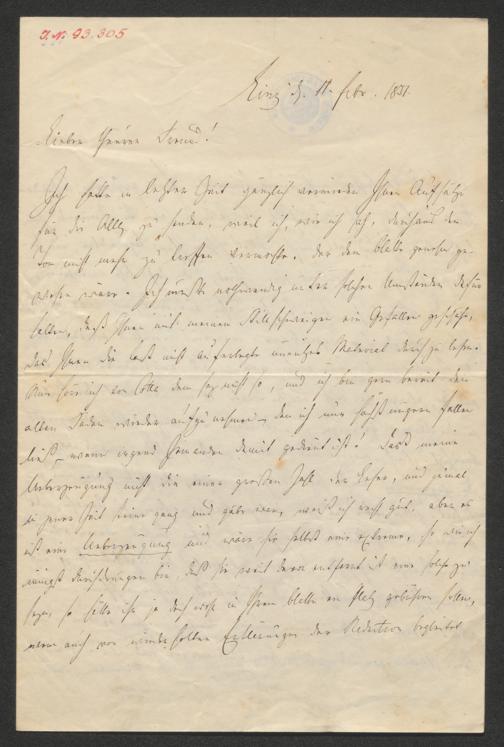 J. N. 93.305
Linz d. 11. Febr. 1851.
Lieber theurer Freund!
Ich hatte in letzter Zeit gänzlich vermieden Ihnen Aufsätze
für die Allg. zu senden, weil ich, wie ich sah, durchaus den
Ton nicht mehr zu treffen vermochte, der dem Blatte genehm ge-
wesen wäre. Ich mußte nothwendig unter solchen Umständen dafür
halten, daß Ihnen mit meinem Stillschweigen ein Gefallen geschehe,
das Ihnen die Last nicht auferlegte unnützes Material durchzulesen.
Nun höre ich von Cotta dem sey nicht so, und ich bin gern bereit den
alten Faden wieder aufzunehmen, den ich nur fallen
ließ, wenn irgend Jemanden damit gedient ist! Daß meine
Ueberzeugung nicht die einer großen Zahl der Leser, und zumal
in jener Zeit keine gang und gäbe war, weiß ich recht gut, aber es
ist eine Ueberzeugung und wäre sie selbst eine extreme, so
durchdrungen bin, daß sie weit davon entfernt ist eine solche zu
seyn, so hätte ihr ja doch wohl in Ihrem Blatte ein Platz gebühren sollen,
wenn auch von wiederholten Erklärungen der Redaktion begleitet